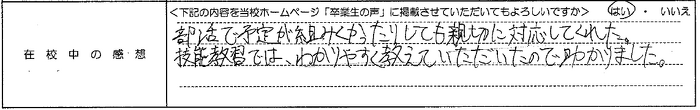 <下記の内容を当校ホームページ「卒業生の声」に掲載させていただいてもよろしいですか> はい ・ いいえ
在校中の感想
部活で予定が組みくかったりしても親切に対応してくれた。
技能教習では、わかりやすく教えていただいたのでわかりました。